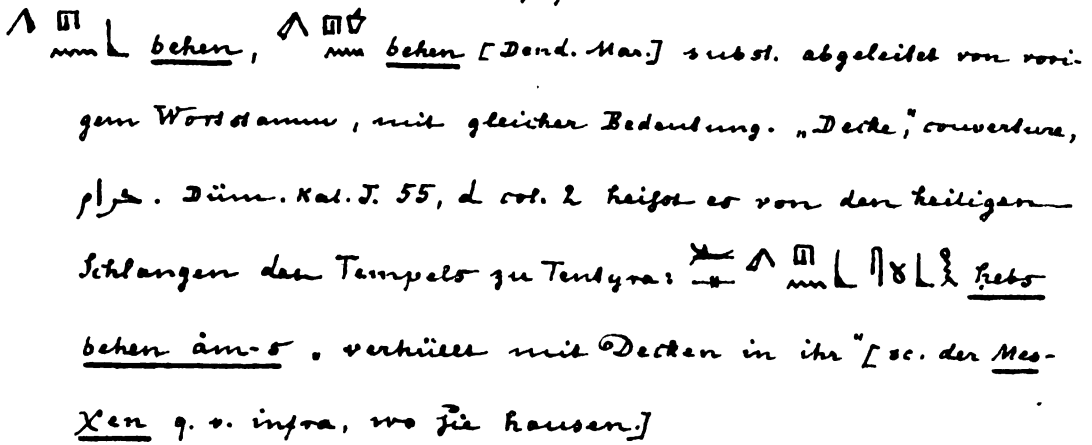 behen, behen [Dend. Mar.] subst. abgeleitet von vori-
gem Wortstamm, mit gleicher Bedeutung. „Decke," couverture,
حرام. Düm. Kal. J. 55, d col. 2 heifst es von den heiligen
Schlangen des Tempels zu Tentyra: ḥebs
behen àm-s „verhüllt mit Decken in ihr" [sc. der Mes-
χen q. v. infra, wo sie hausen.]